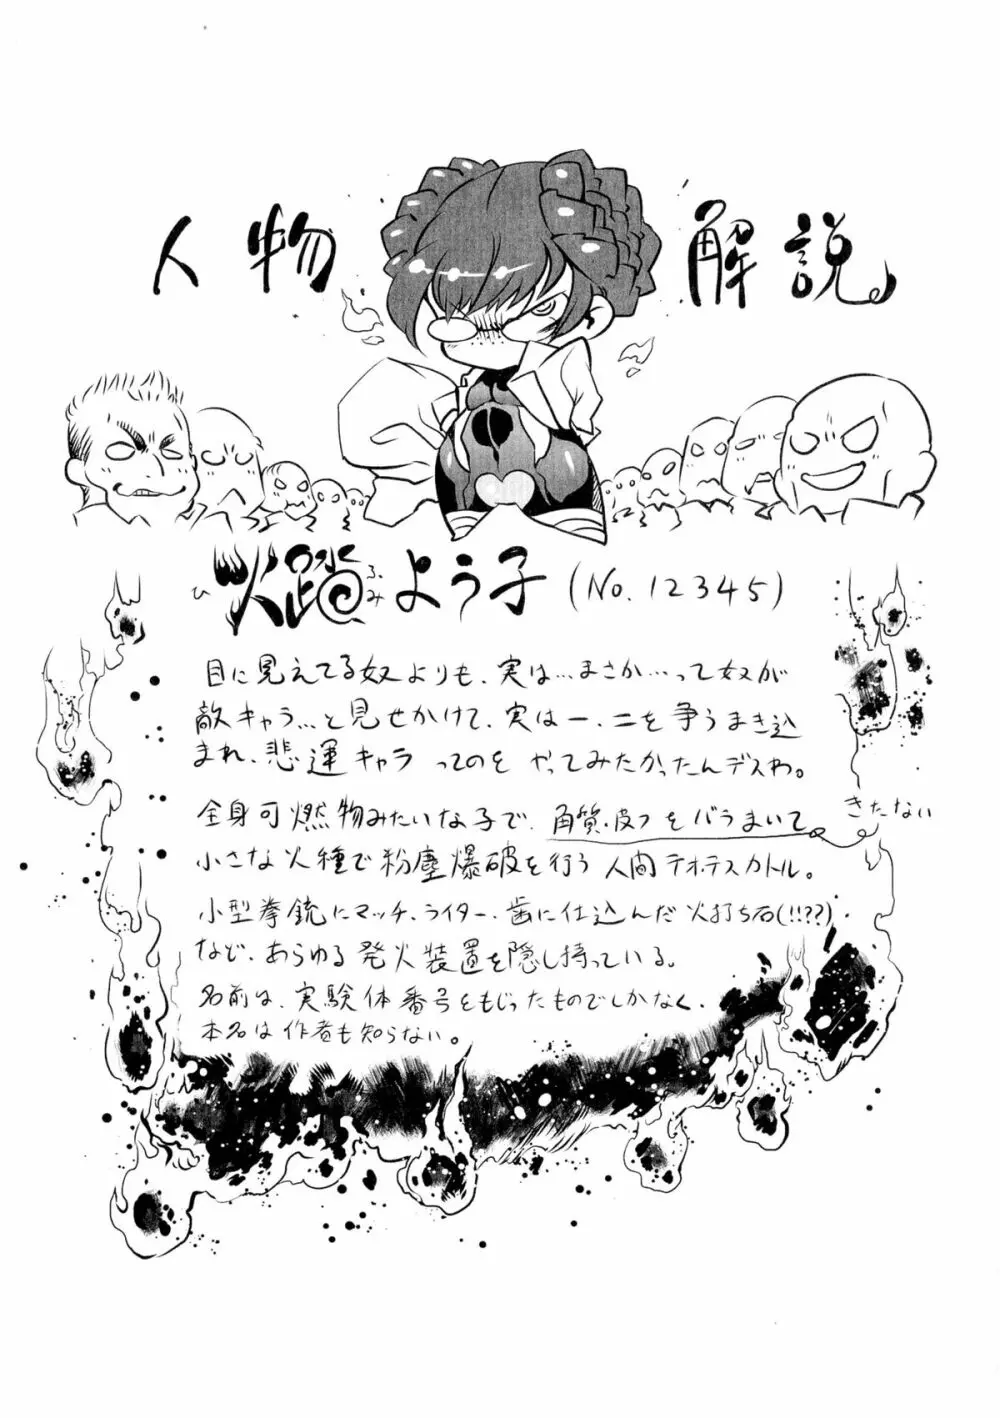 人物解説。
火踏よう子(No.12345)
ひ
ふみ
目に見えてる奴よりも、実は…まさか…って奴が
敵キャラ…と見せかけて、実は一、二を争うまき込
まれ、悲運キャラってのをやってみたかったんデスわ。
全身可燃物みたいな子で、角質・皮フをバラまいて。
きたない
小さな火種で粉塵爆破を行う人間テオ・テスカトル。
小型拳銃にマッチ、ライター、歯に仕込んだ火打ち石(!!??)
など、あらゆる発火装置を隠し持っている。
名前は、実験体番号をもじったものでしかなく、
本名は作者も知らない。